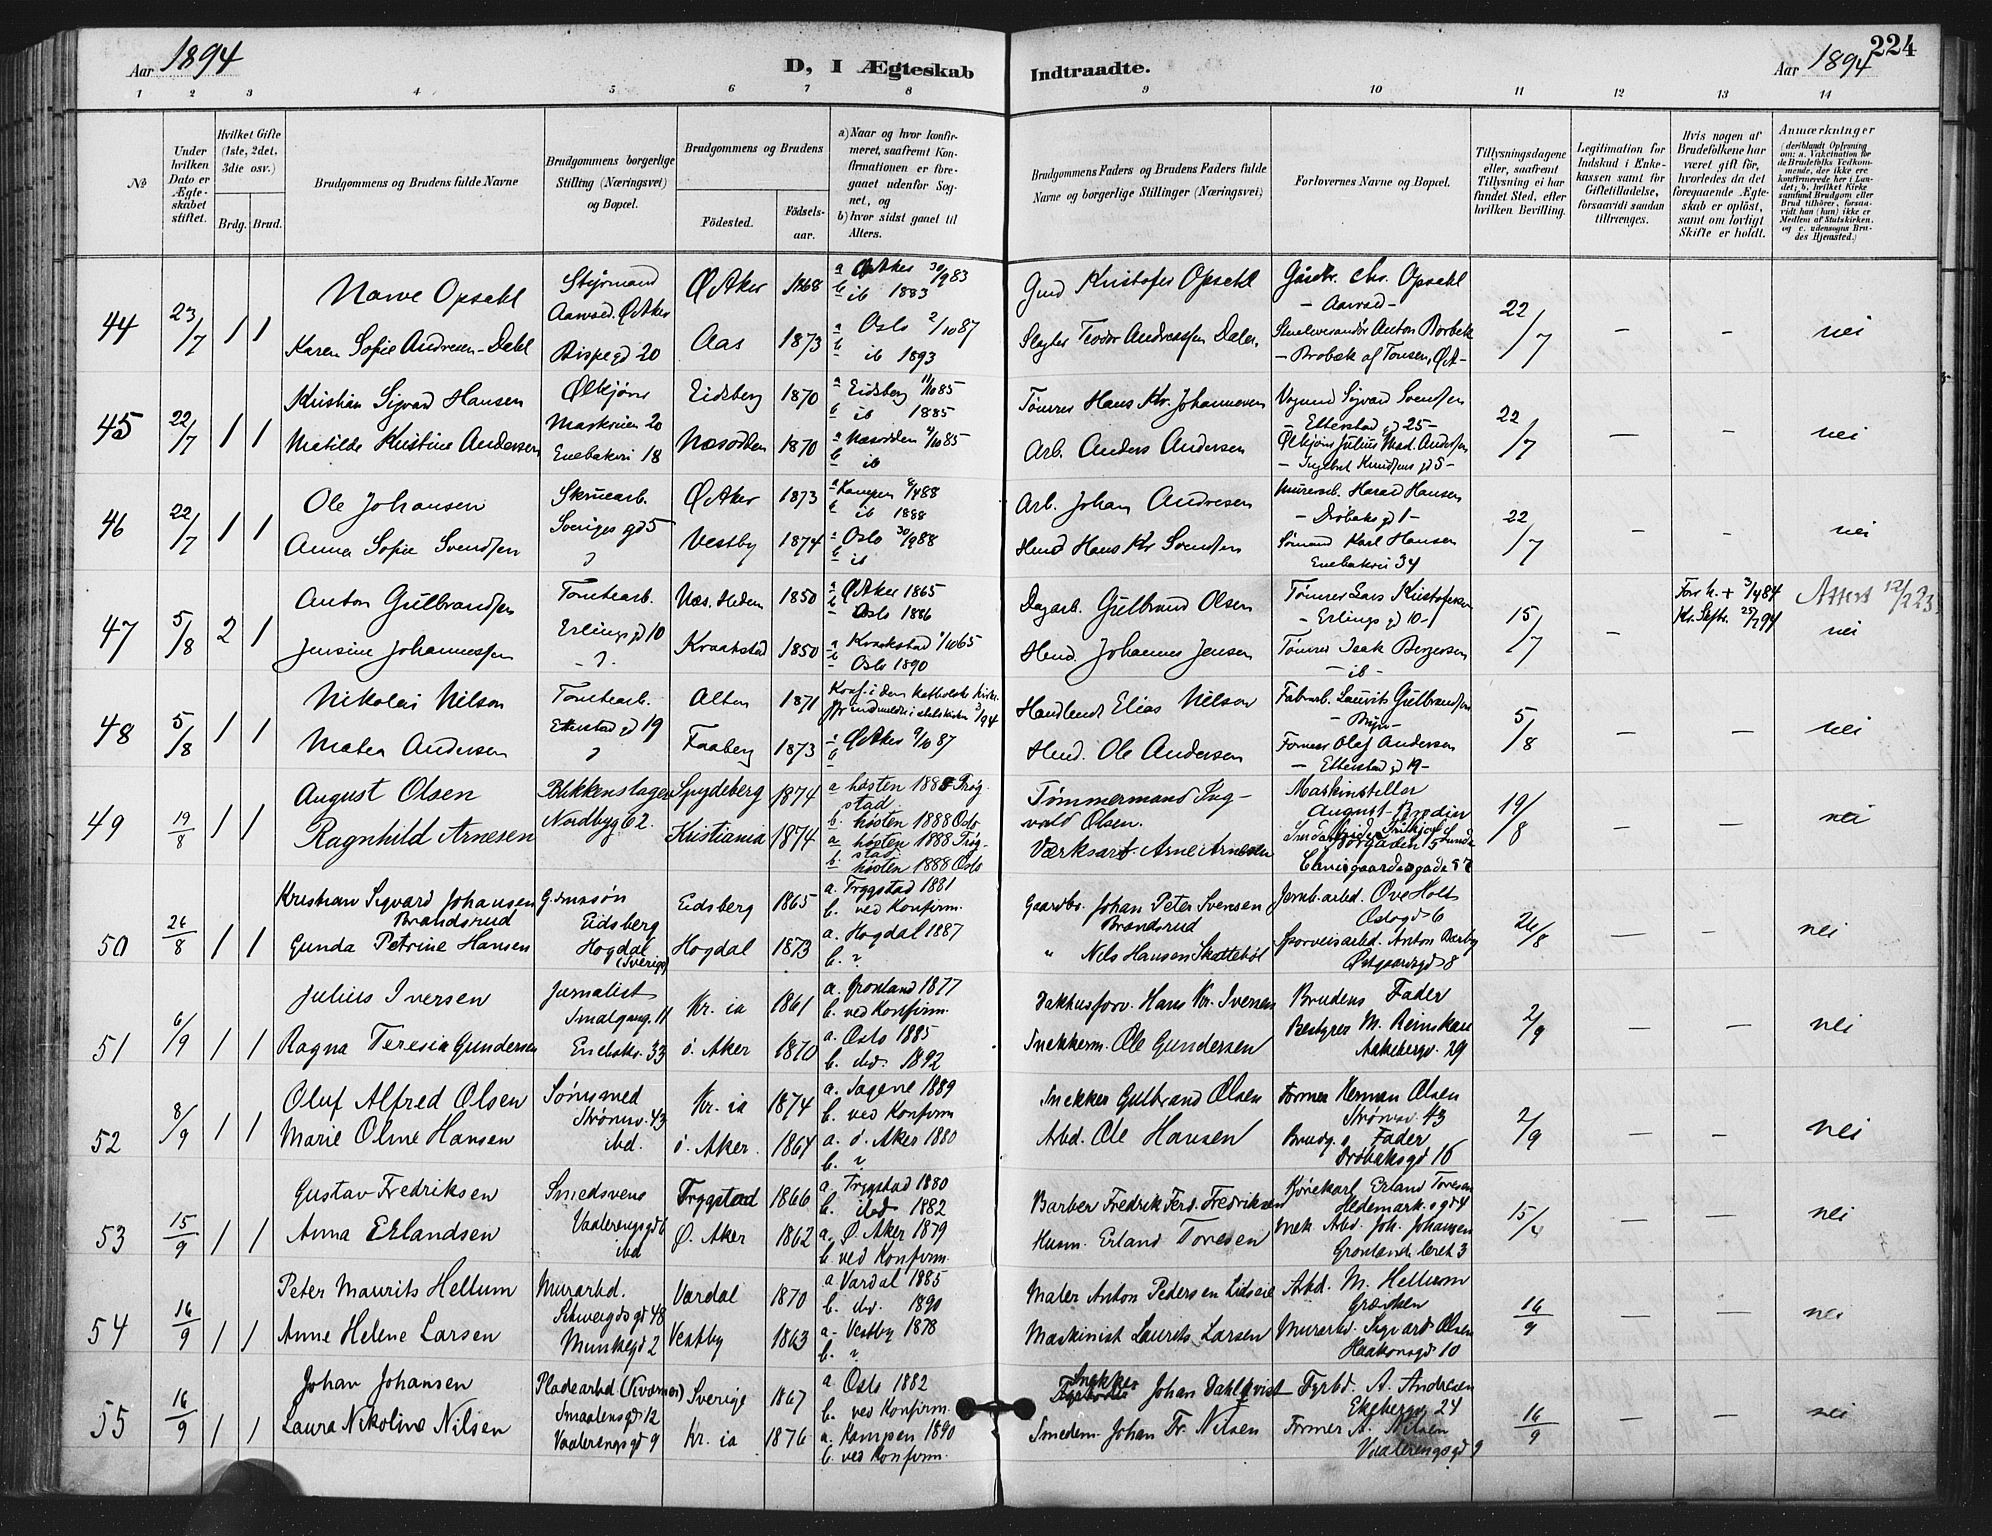 Aar 1894
D, I Ægteskab
Indtraadte.
Aar 1894
224
1 2 3 4 5 6 7 8 9 10 11 12 13 14
№
Under hvilken Dato er Ægteskabet stiftet.
Hvilket Gifte (1ste, 2det, 3die osv.)
Brdg. Brud.
Brudgommens og Brudens fulde Navne
Brudgommens borgerlige Stilling (Næringsvei) og Bopæl.
Brudgommens og Brudens
Fødested.
Fødselsaar.
a) Naar og hvor konfirmeret, saafremt Konfirmationen er foregaaet udenfor Sognet, og
b) hvor sidst gaaet til Alters.
Brudgommens Faders og Brudens Faders fulde Navne og borgerlige Stillinger (Næringsvei)
Forlovernes Navne og Bopæl.
Tillysningsdagene eller, saafremt Tillysning ei har fundet Sted, efter hvilken Bevilling.
Legitimation for Indskud i Enkekassen samt for Giftetilladelse, forsaavidt saadan tiltrænges.
Hvis nogen af Brudefolkene har været gift før, hvorledes da det foregaaende Ægteskab er opløst, samt om lovligt Skifte er holdt.
Anmærkninger
44 23/7 1 1
Narve Opsahl
Styrmand
Ø. Aker 1868
a Ø. Aker 30/9 83
b ib 1883
Gmd Kristofer Opsahl
Gaardbr. Chr. Opsahl
22/7 — — nei
Karen Sofie Andresen-Dahl
Bispegd 20
Aas 1873
a Oslo 2/10 87
b ib 1893
45 22/7 1 1
Kristian Sigvard Hansen
Ølkjører
Eidsberg 1870
a Eidsberg 11/10 85
b ib 1885
Tømrer Hans Kr. Johannesen
Vognmd Sigvard Svendsen
— Etterstad gd 25 —
22/7 — — nei
Matilde Kristine Andersen
Enebakvei 18
Næsodden 1870
a Næsodden 4/10 85
b ib
Arb. Anders Andersen
Ølkjører Julius Mad. Andersen
46 22/7 1 1
Ole Johansen
Skruearb.
Sveriges gd 5
Ø. Aker 1873
a Kampen 8/4 88
b ib 1888
Arb. Johan Andresen
Murerarb. Harad Hansen
— Drøbaks gd 1 —
22/7 — — nei
Anna Sofie Svendsen
?
Vestby 1874
a Oslo 30/9 88
b ib
Hmd Hans Kr Svendsen
Sømand Karl Hansen
Enebakvei 34
47 5/8 2 1
Anton Gulbrandsen
Tomtearb.
Erlings gd 10
Næs. Hedem 1850
a Ø. Aker 1865
b Oslo 1886
Dagarb. Gulbrand Olsen
Tømrer Lars Kristofersen
— Erlings gd 10 —
15/7 —
Attest 12/2 23
nei
Jensine Johannessen
— ? —
Kraakstad 1850
a Kraakstad 1/10 65
b Oslo 1890
Hmd. Johannes Jensen
Tømrer Isak Bergersen
— ib —
48 5/8 1 1
Nikolai Nilson
Tomtearb.
Etterstad gd 19
Alten 1871
Konf. i den katholske Kirke
Handlende Elias Nilson
Fabrarb. Laurits Gulbrandsen
— Bryn —
5/8 — — nei
Maten Andersen
?
Faaberg 1873
a Ø. Aker 9/10 87
Hmd. Ole Andersen
Former Olaf Andersen
— Etterstad gd 19 —
49 19/8 1 1
August Olsen
Blikkenslager
Nordbyg 62.
Spydeberg 1874
a høsten 1888 Trøgstad
b. høsten 1888 Oslo
Tømmermand Ingvald Olsen.
Maskinstiller
19/8 — — nei
Ragnhild Arnesen
Kristiania 1874
a høsten 1888 Trøgstad
b. høsten 1888 Oslo
Værksarb. Arne Arnesen
50 26/8 1 1
Kristian Sigvard Johansen Brandsrud
G.mssøn
Eidsberg
Eidsberg 1865
a. Trygstad 1881
b. ved Konfirm.
Gaardbr. Johan Peter Svensen Brandsrud
Jernb.arbd. Ove Holt
Oslogd 6
26/8 — — nei
Gunda Petrine Hansen
Hogdal (Sverige)
Hogdal 1873
a. Hogdal 1887
b. ?
" Nils Hansen Skottebøl
Sporveisarbd. Anton Bærby
Østgaardsgd 8
51 6/9 1 1
Julius Iversen
Jurnalist
Smalgang. 11
Kr. ia 1861
a. Grønland 1877
b. ved Konfirm.
Pakhusforv. Hans Kr. Iversen
Brudens Fader
2/9 — — nei
Ragna Teresia Gundersen
Enebakv. 33
ø. Aker 1870
a. Oslo 1885
b. ibd. 1892
Snekkerm. Ole Gundersen
Bestyrer M. Reinskau
Aakebergv. 29
52 8/9 1 1
Oluf Alfred Olsen
Sømsmed
Strømsv. 43
Kr. ia 1874
a. Sagene 1889
b. ved Konfirm
Snekker Gulbrand Olsen
Former Herman Olsen
Strømsv. 43
2/9 — — nei
Marie Oline Hansen
ibd.
ø. Aker. 1864
a. ø. Aker 1880
b. ?
Arbd. Ole Hansen
Brudg. s Fader
Drøbaksgd 16
53 15/9 1 1
Gustav Fredriksen
Smedsvend
Vaalerengsgd 6
Trygstad 1866
a. Trygstad 1880
b. ibd 1882
Barber Fredrik Ferd. Fredriksen
Kjørekarl Erland Toresen
Hedemark.sgd 4
— — nei
Anna Erlandsen
ibd
Ø. Aker 1862
a. Ø. Aker 1879
b. ved Konfirm.
Husm. Erland Toresen
Mek. Abd. Joh. Johansen
Grønlands leret 3
54 16/9 1 1
Peter Maurits Hellum
Murarbd.
Schweigdsgd 48
Vardal 1870
a Vardal 1885
b. ibd. 1890
Maler Anton Pedersen Lidseie
Arbd. M. Hellum
16/9 — — nei
Anne Helene Larsen
Munkegd 2
Vestby 1863
a. Vestby 1878
b. ?
Maskinist Laurets Larsen
Murarbd. Sigvard Olsen
Haakonsgd 10
55 16/9 1 1
Johan Johansen
Pladearbd (Kværner)
Smaalensgd 12
Sverige 1867
a. Oslo 1882
b. ved Konfirm.
Snekker Johan Dahlqvist
Fyrbd. A. Andresen
Ekebergv 24
16/9 — — nei
Laura Nikoline Nilsen
Vaalerengsgd 9
Kr. ia 1876
a. Kampen 1890
b. ved Konfirm.
Smedem. Johan Fr. Nilsen
Former A. Nilsen
Vaalerengsgd 9